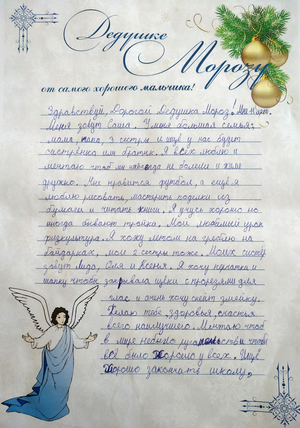 Дедушке
Морозу
от самого хорошего мальчика!
Здравствуй, Дорогой Дедушка Мороз! Мне
Меня зовут Саша. У меня большая семья:
мама, папа, 3 сестры и ещё у нас будет
сестрёнка или братик. Я всех люблю и
мечтаю чтоб мы никогда не болели и жили
дружно. Мне нравится футбол, а ещё я
люблю рисовать, мастерить поделки из
бумаги и читать книги. Я учусь хорошо но
иногда бывают тройки. Мой любимый урок
физкультура. Я хожу летом на греблю на
байдарках, мои 2 сестры тоже. Моих сестёр
зовут Лида, Оля и Ксения. Я хочу перчатки и
шапку чтобы закрывала щёки с прорезями для
глаз и очень хочу скейт змейку.
Желаю тебе здоровья, счастья
всего наилучшего. Мечтаю чтоб
в мире не было чтоб
всё было хорошо у всех. Ещё
хорошо закончить школу,